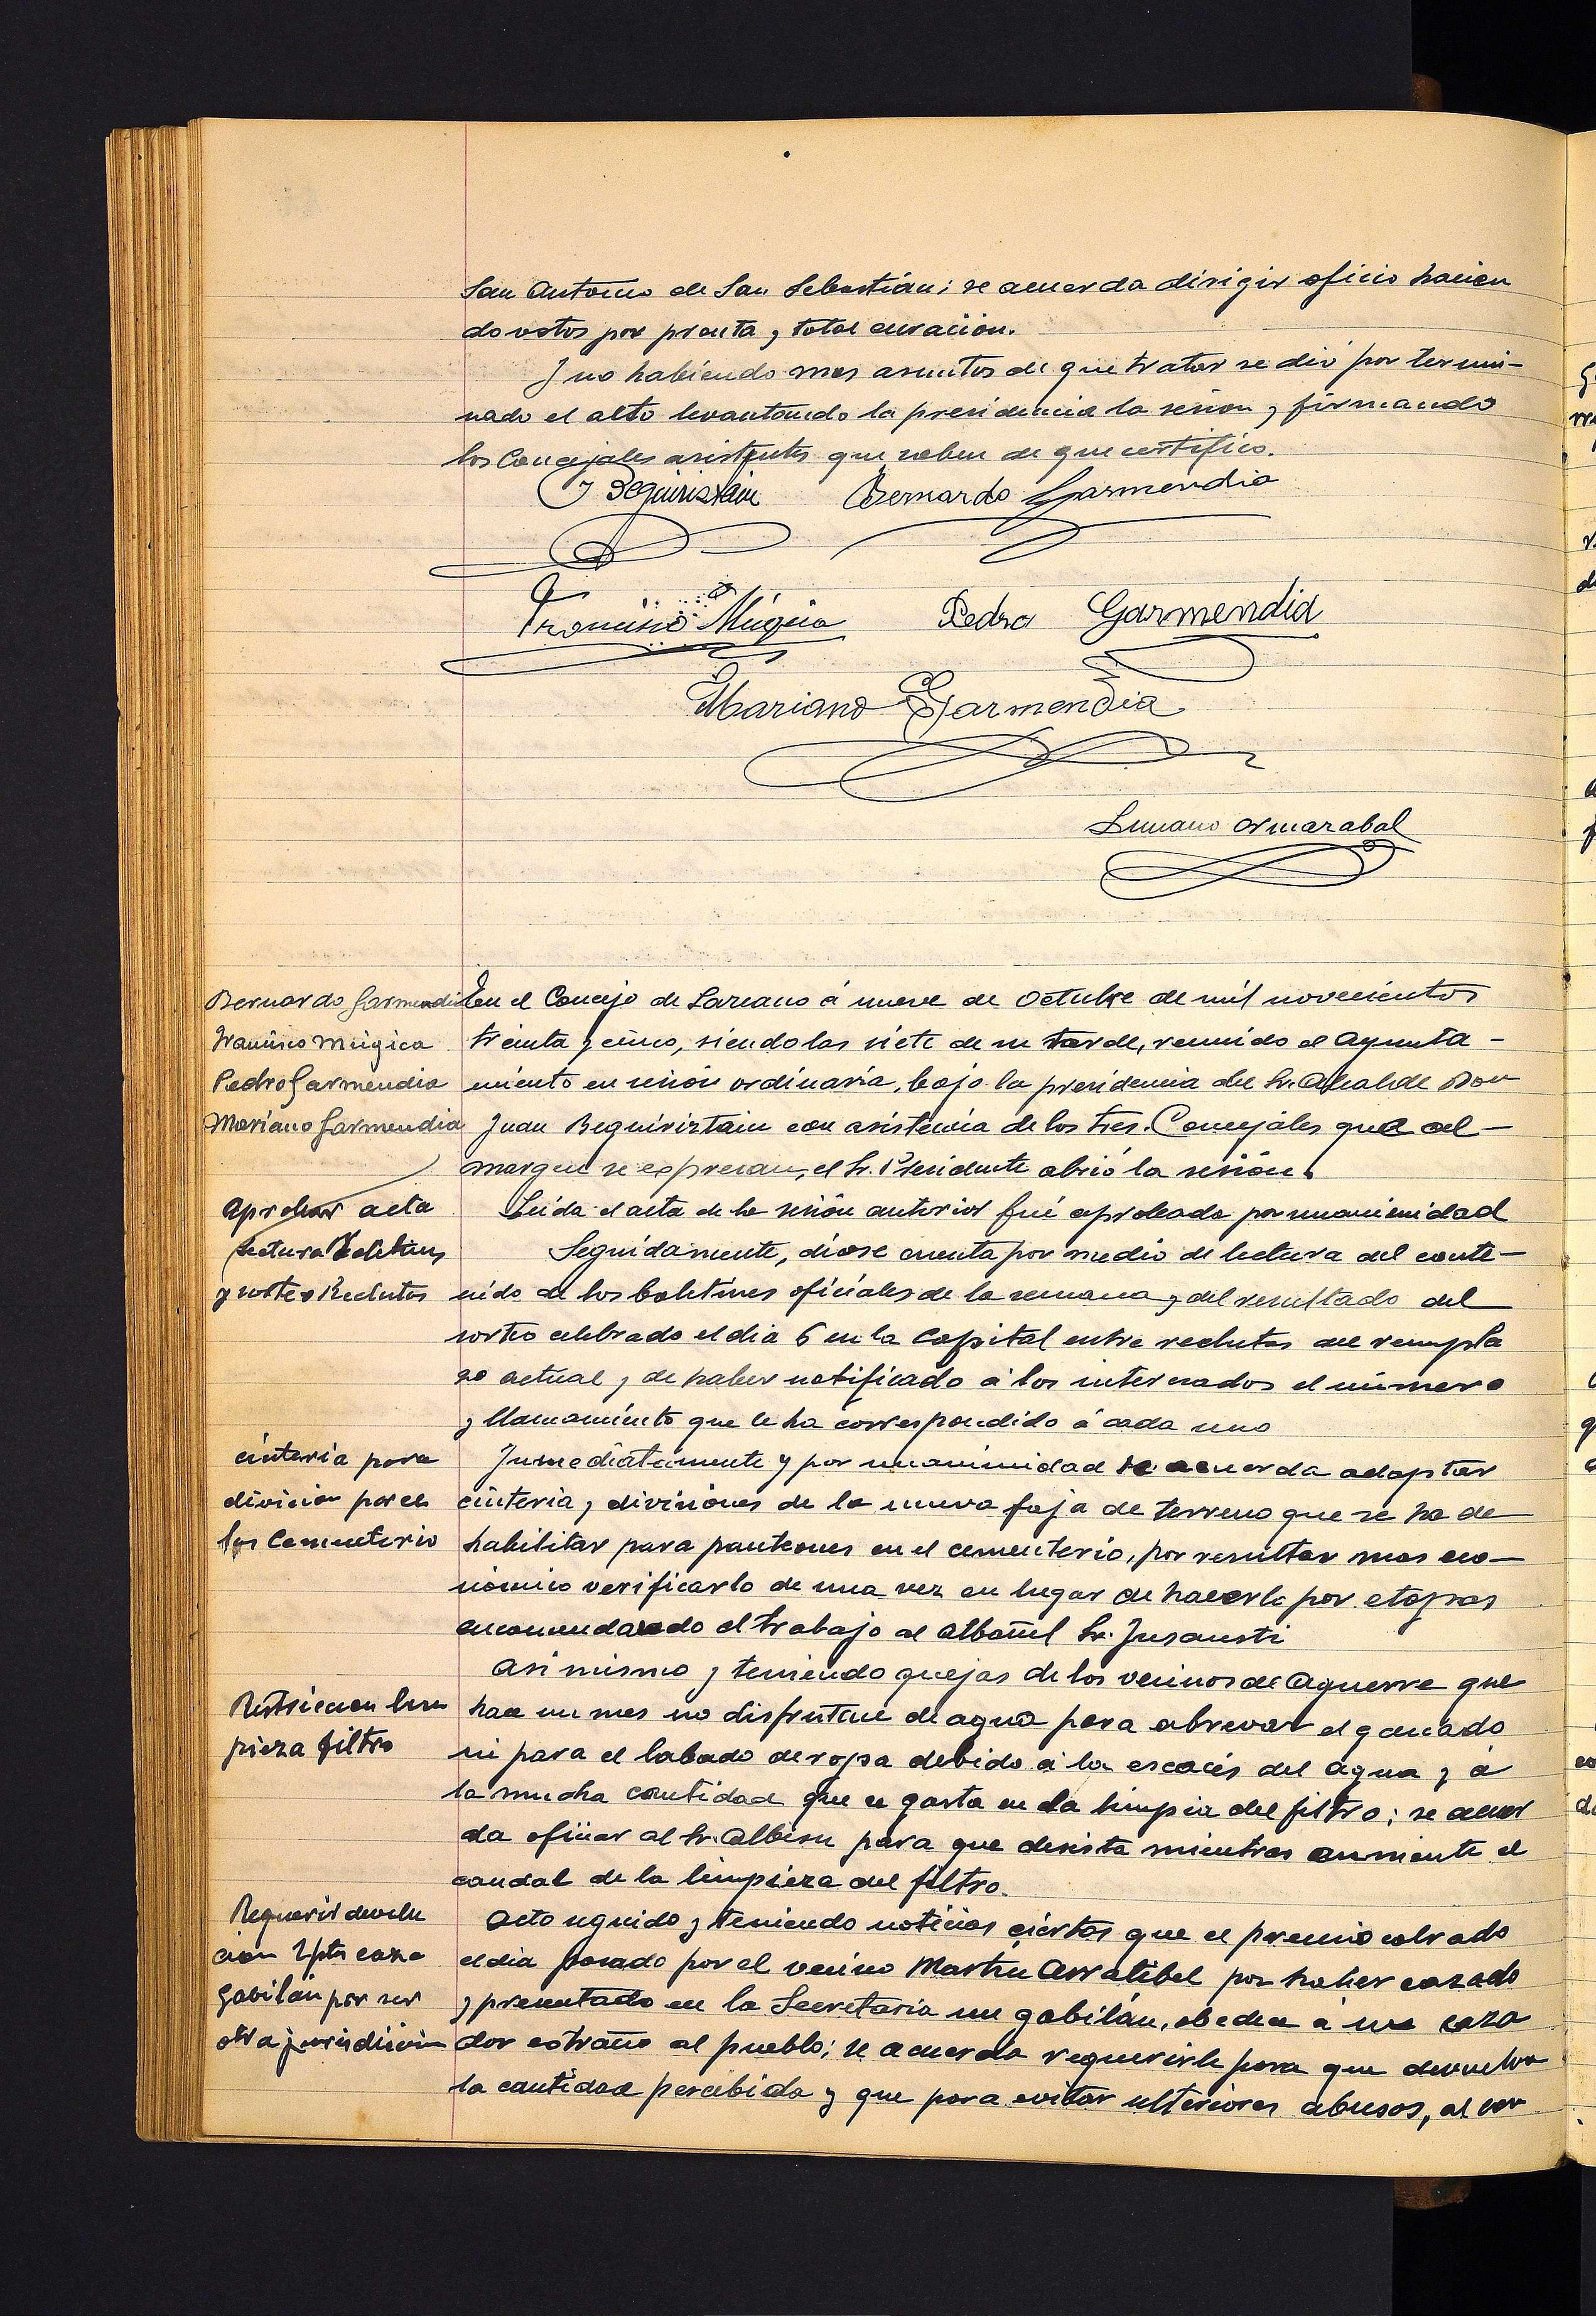 San Antonio de San Sebastián; se acuerda dirigir oficio hacien
do votos por pronta y total curación.
Y no habiendo mas asuntos de que tratar se dió por termi-
nado el alto levantando la presidencia la sesion y firmando
los Concejales asistentes que saben de que certifico.
J Beguiristain Bernardo Garmendia
Francisco Múgica Pedro Garmendia
Mariano Garmendia
Luciano Ormazabal
Bernardo Garmendia
Francisco Múgica
Pedro Garmendia
Mariano Garmendia
En el Concejo de Lazcano á nueve de Octubre de mil novecientos
treinta y cinco, siendo las siete de su tarde, reunido el Ayunta-
miento en sesión ordinaria, bajo la presidencia del Sr. Alcalde Don
Juan Beguiriztain con asistencia de los tres Concejales que al
margen se expresan, el Sr. Presidente abrió la sesión.
Aprobar acta
Leida el acta de la sesión anterior fué aprobada por unanimidad
Lectura Boletines
y sorteo Reclutas
Seguidamente, diose cuenta por medio de lectura del conte-
nido de los boletines oficiales de la semana y del resultado del
sorteo celebrado el dia 6 en la Capital entre reclutas del reempla
zo actual y de haber notificado á los interesados el número
y llamamiento que le ha correspondido á cada uno
cinteria para
division parce
las Cementerio
Inmediatamente y por unanimidad se acuerda adoptar
cinteria y divisiones de la nueva faja de terreno que se ha de
habilitar para panteones en el cementerio, por resultar mas eco-
nómico verificarlo de una vez en lugar de hacerlo por etapas
encomendando el trabajo al albañil Sr. Insausti
limpieza filtro
Asi mismo y teniendo quejas de los vecinos de Aguerre que
hace un mes no disfrutan de agua para abrevar el ganado
ni para el labado de ropa debido á la escacés del agua y á
la mucha cantidad que se gasta en la limpia del filtro; se acuer
da oficiar al Sr. Albisu para que desista mientras aumente el
caudal de la limpieza del filtro.
Requerir devolu
cion 2 pts caza
gabilán por ser
otra jurisdicción
Acto seguido y teniendo noticias ciertas que el premio cobrado
el dia pasado por el vecino Martin Arratibel por haber cazado
y presentado en la Secretaria un gabilán, obedece á un caza
dor estraño al pueblo; se acuerda requerirle para que devuelva
la cantidad percibida y que para evitar ulteriores abusos, al